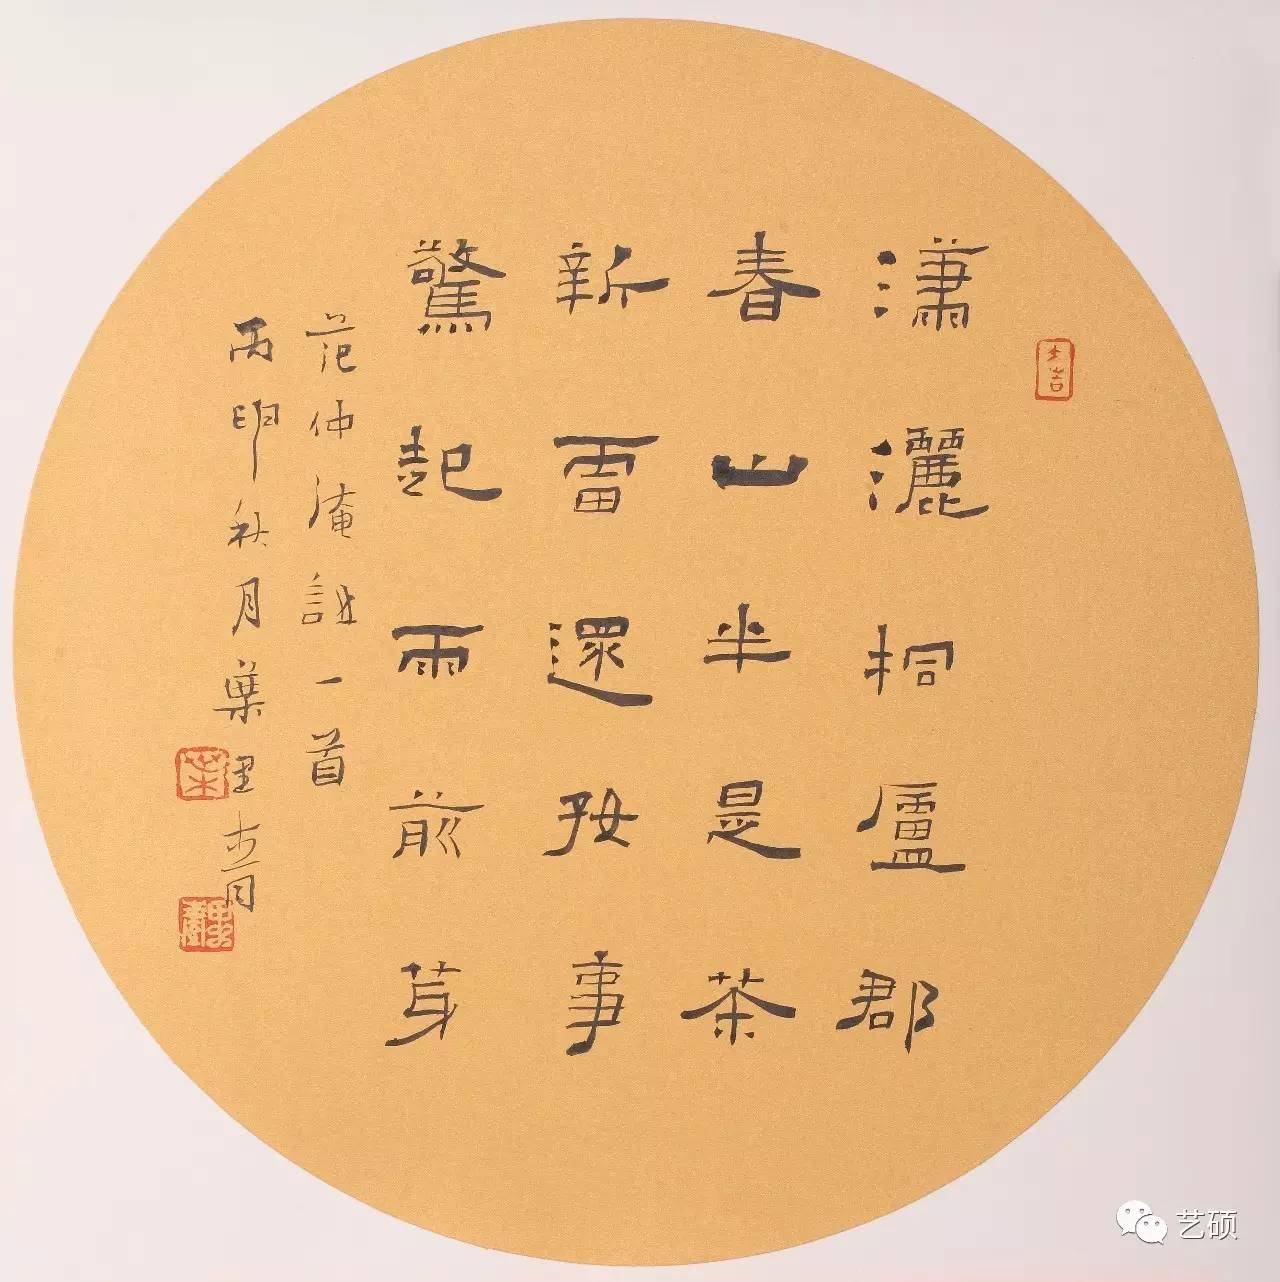 大吉
瀟灑桐廬郡
春山半是茶
新雷還好事
驚起雨前芽
范仲淹詩一首
丙申秋月葉
葉
艺硕